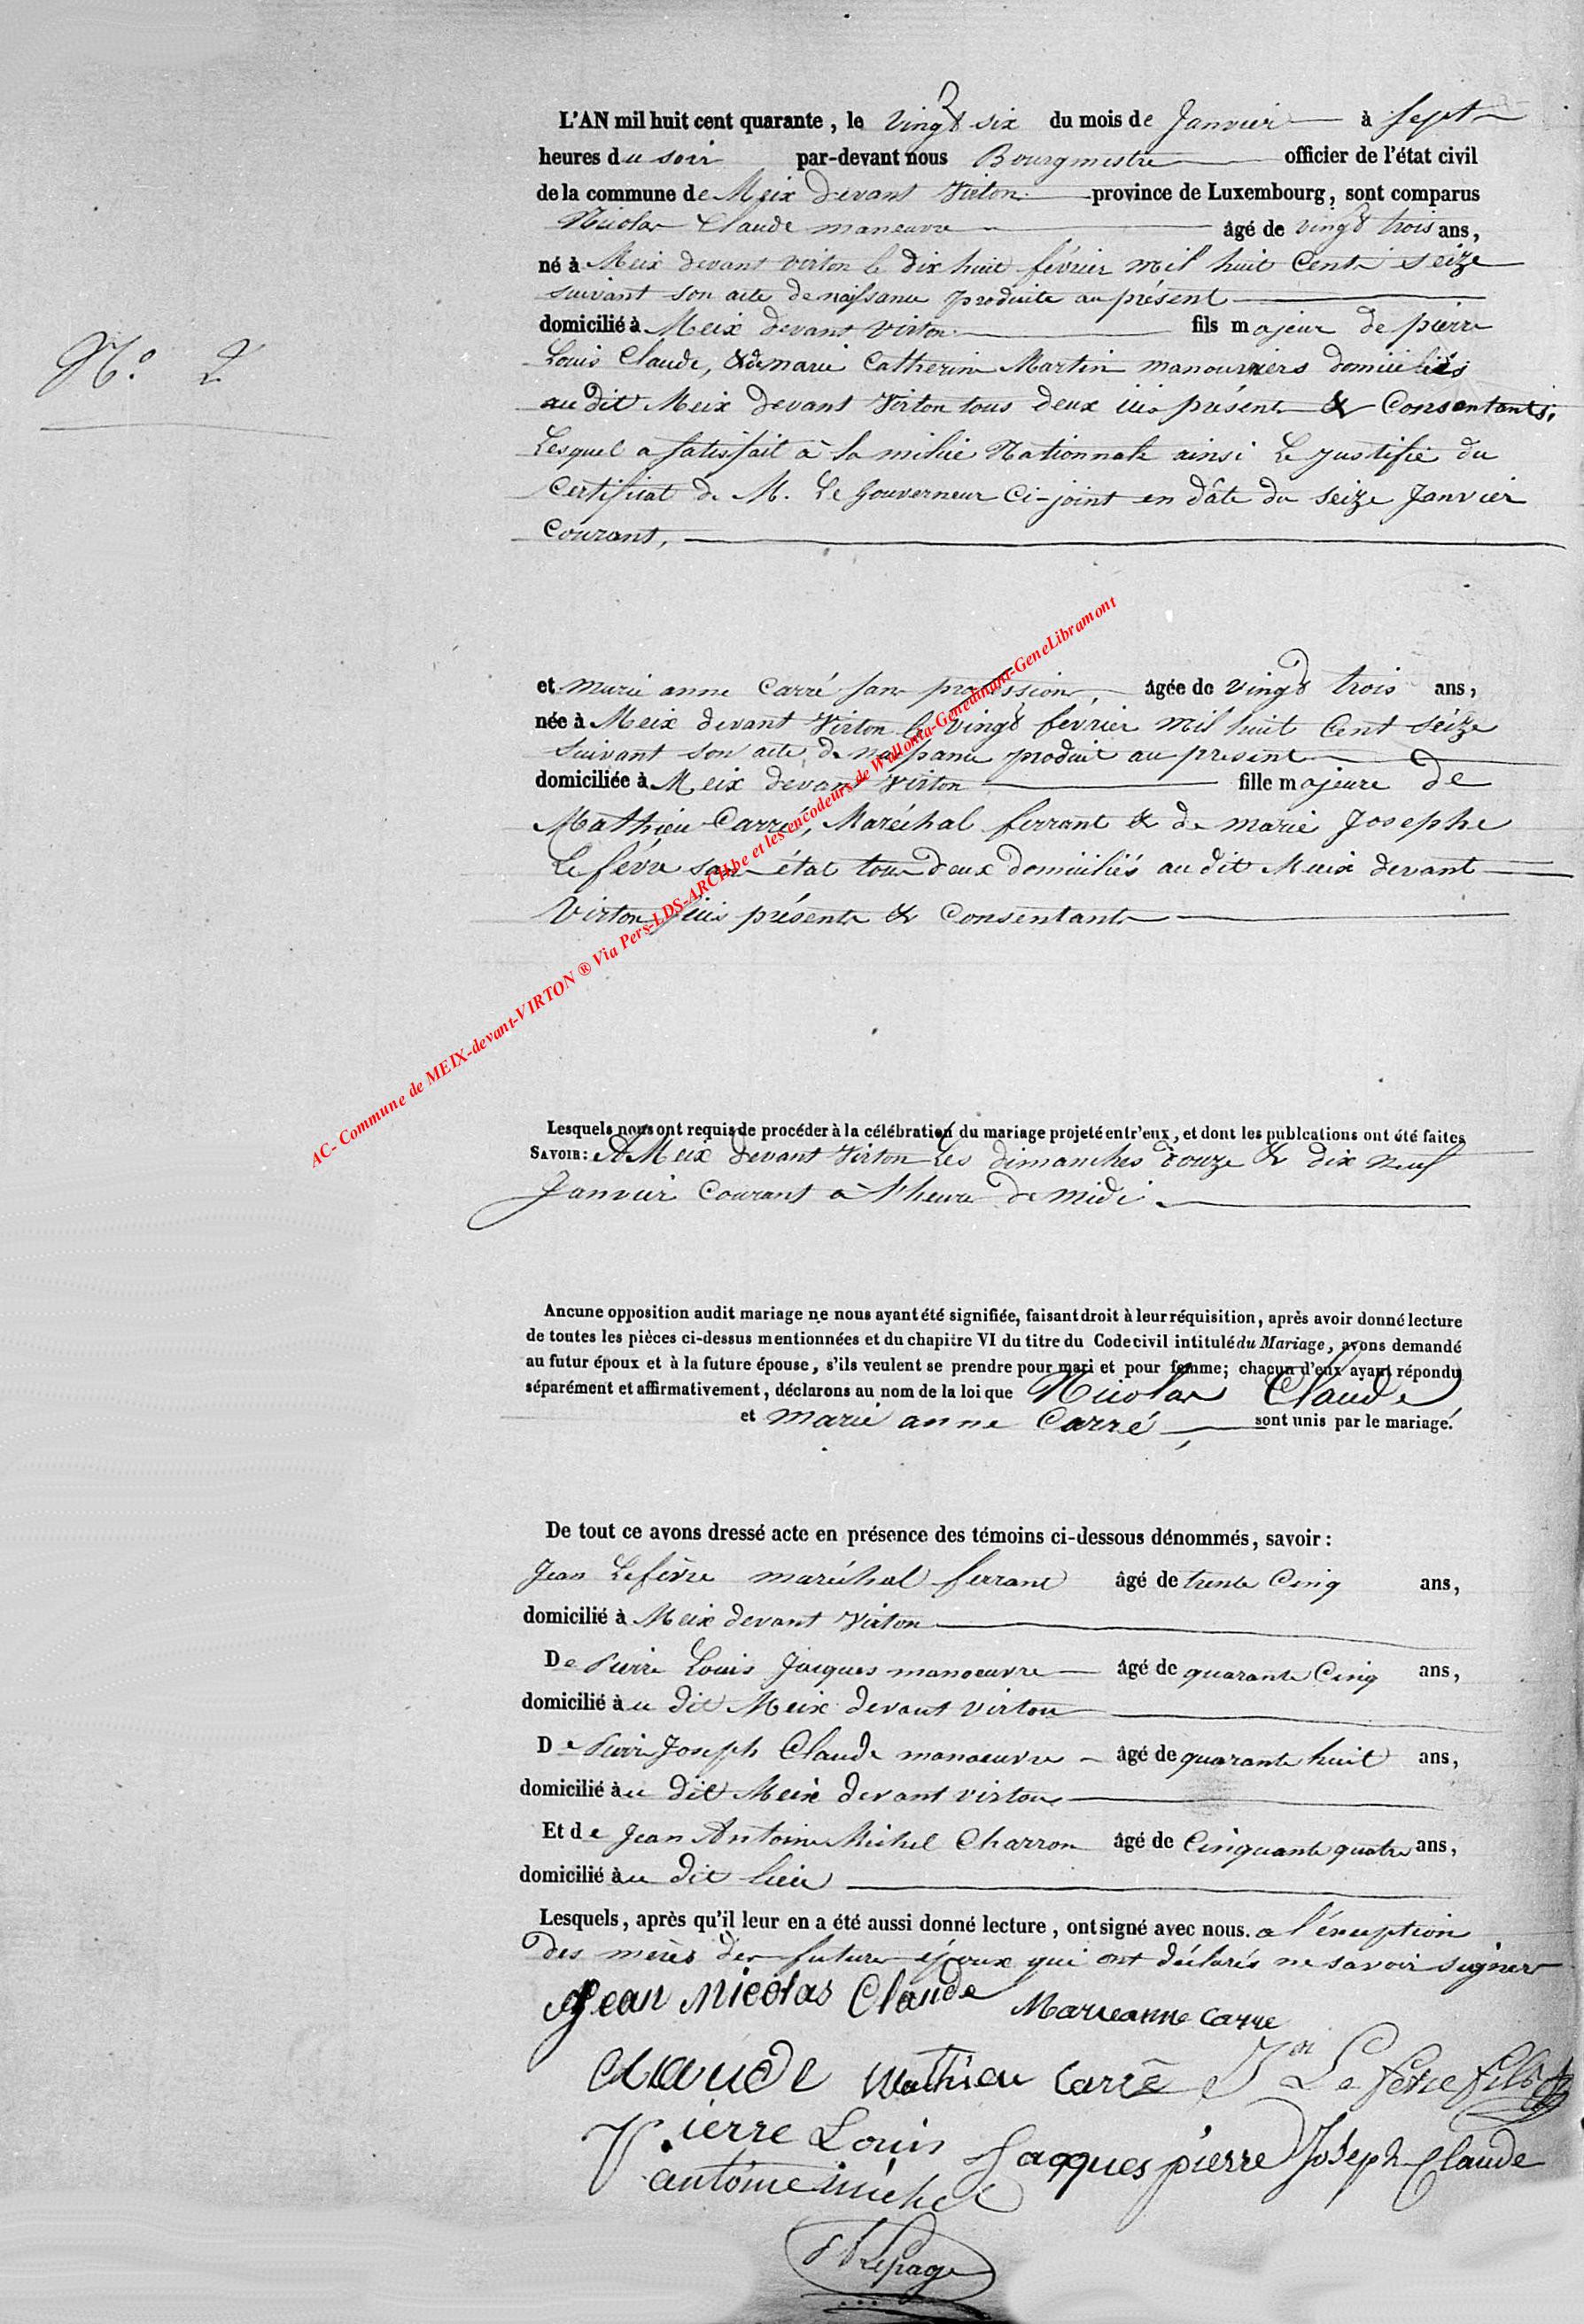 L'AN mil huit cent quarante, le vingt six du mois de Janvier à sept
heures du soir par-devant nous Bourgmestre officier de l'état civil
de la commune de Meix devant Virton province de Luxembourg, sont comparus
Nicolas Claude maneuvre âgé de vingt trois ans,
né à Meix devant virton le dix huit février mil huit Cent seize
suivant son acte de naissance produite au présent
N.º 2
domicilié à Meix devant Virton fils majeur de pierre
Louis Claude, & de marie Catherine Martin manouvriers domiciliés
au dit Meix devant Virton tous deux ici présents & Consentants,
Lesquel a satisfait à la milice Nationnale ainsi Le justifie du
Certificat de M. Le Gouverneur Ci-joint en dâte du seize Janvier
Courant,
et marie anne Carré sans profession, âgée de vingt trois ans,
née à Meix devant Virton le vingt février mil huit Cent seize
suivant son acte de naissance produit au present
domiciliée à Meix devant Virton fille majeure de
Mathieu Carré, Maréchal ferrant & de marie Josephe
Le févre sans état tous deux domiciliés au dit Meix devant
Virton ici présents & Consentants
AC- Commune de MEIX-devant-VIRTON ® Via Pers-LDS-ARCH.be et les encodeurs de Wallonia-Genedinant-GeneLibramont
Lesquels nous ont requis de procéder à la célébration du mariage projeté entr'eux, et dont les publcations ont été faites
SAVOIR: A Meix devant Virton Les dimanches douze & dix neuf
Janvier Courant à l'heure de midi
Aucune opposition audit mariage ne nous ayant été signifiée, faisant droit à leur réquisition, après avoir donné lecture
de toutes les pièces ci-dessus mentionnées et du chapitre VI du titre du Code civil intitulé du Mariage, avons demandé
au futur époux et à la future épouse, s'ils veulent se prendre pour mari et pour femme; chacun d'eux ayant répondu
séparément et affirmativement, déclarons au nom de la loi que Nicolas Claude
et marie anne Carré sont unis par le mariage.
De tout ce avons dressé acte en présence des témoins ci-dessous dénommés, savoir:
Jean Lefèvre maréchal ferrant âgé de trente Cinq ans,
domicilié à Meix devant Virton
De Pierre Louis Jacques manoeuvre âgé de quarante Cinq ans,
domicilié au dit Meix devant virton
De Pierre Joseph Claude manoeuvre âgé de quarante huit ans,
domicilié au dit Meix devant virton
Et de Jean Antoine Michel Charron âgé de Cinquante quatre ans,
domicilié au dit lieu
Lesquels, après qu'il leur en a été aussi donné lecture, ont signé avec nous. a l'éxeption
des mères des futurs époux qui ont déclarés ne savoir signer
Jean Nicolas Claude Marieanne Carre
Claude Mathieu Carré Jn Le fevre fils
Pierre Louis Jacques pierre Joseph Claude
antoine michel
Lepage